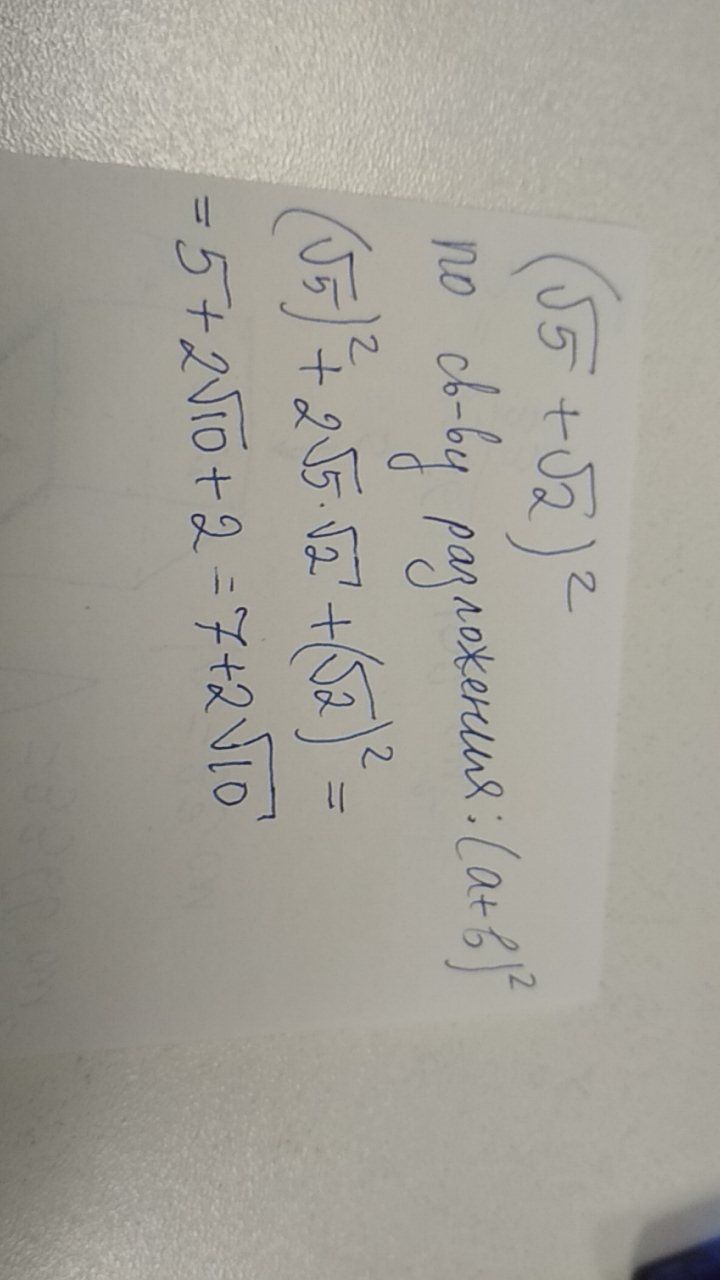 (√5 + √2)²
по св-ву разложения: (a+b)²
(√5)² + 2√5 · √2 + (√2)² =
= 5 + 2√10 + 2 = 7 + 2√10